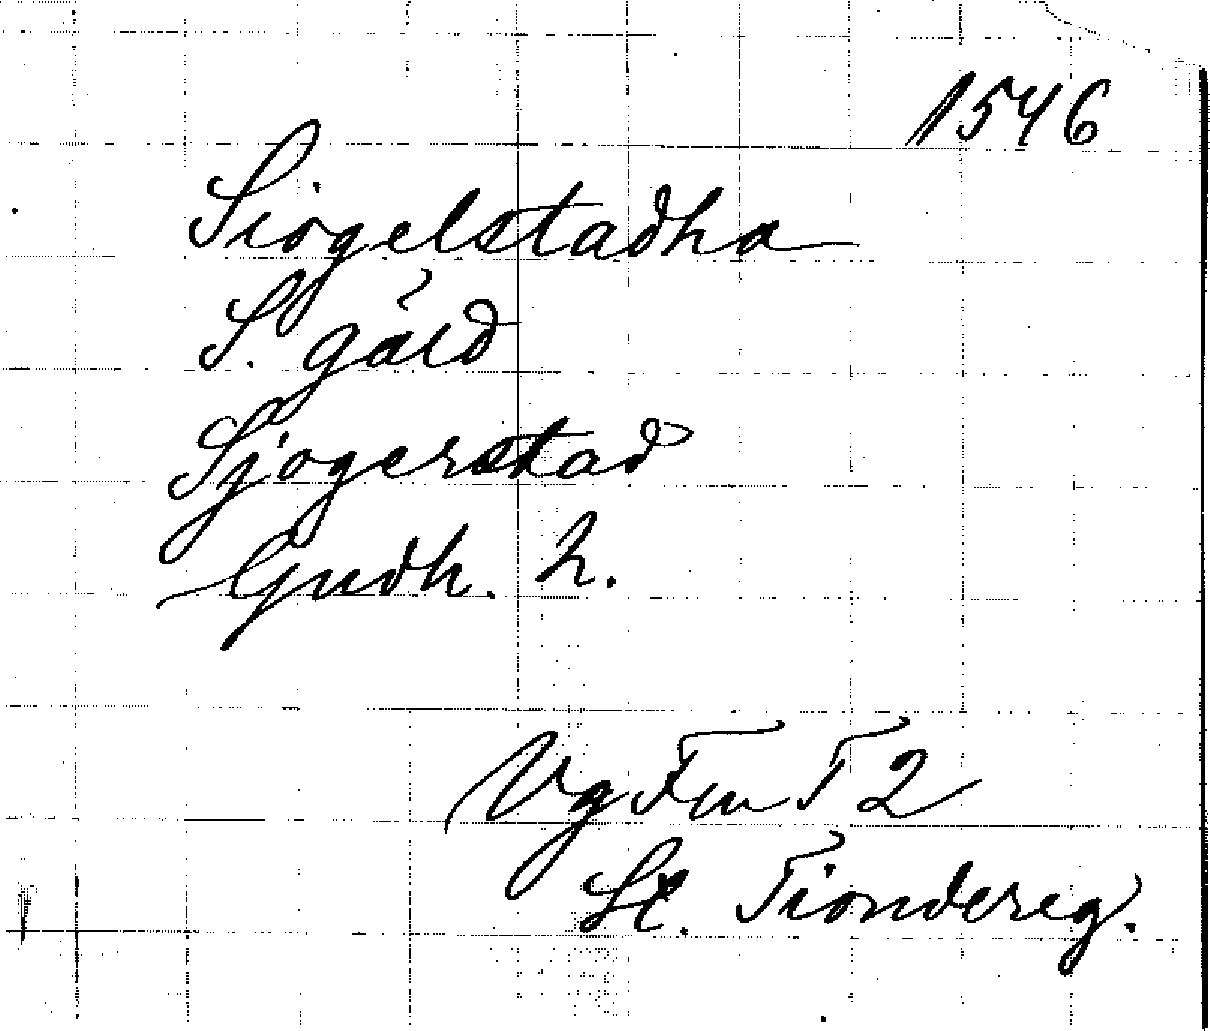 1546
Siogelstadha
S. gärd
Sjogerstad
Gudh. h.
Vg Fm T 2
St. Tiondereg.